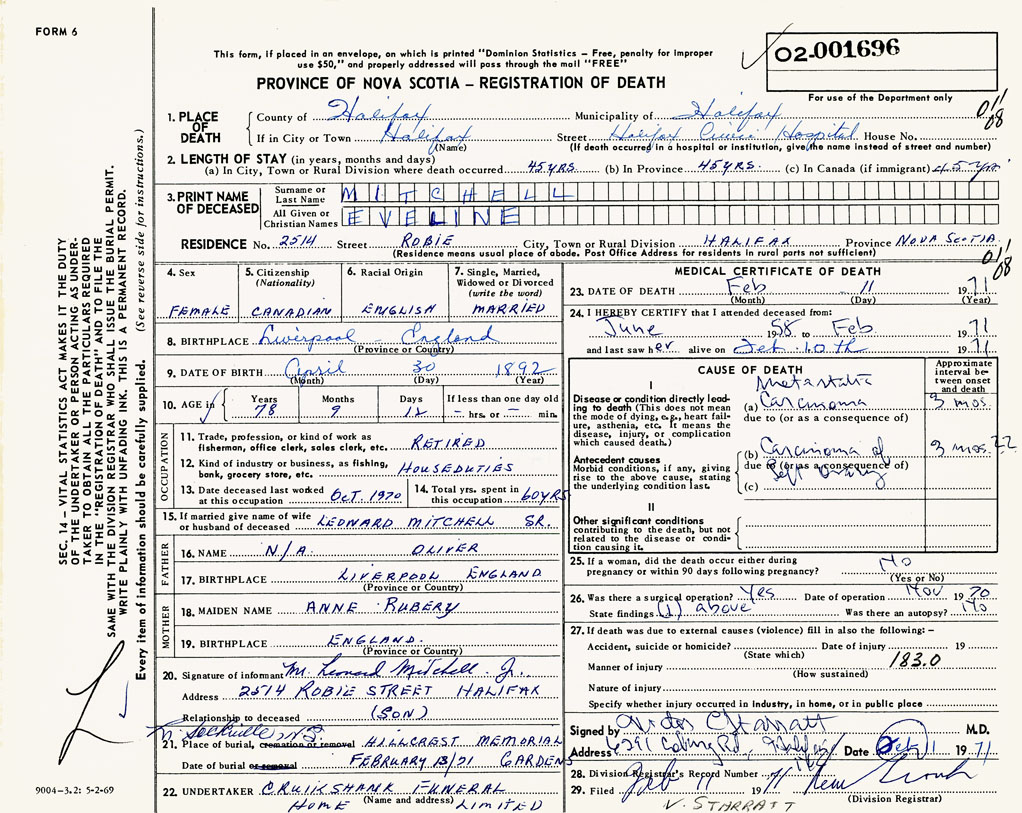 FORM 6
This form, if placed in an envelope, on which is printed "Dominion Statistics – Free, penalty for improper
use $50," and properly addressed will pass through the mail "FREE"
02-001696
PROVINCE OF NOVA SCOTIA – REGISTRATION OF DEATH
For use of the Department only
011
08
1. PLACE OF DEATH
County of Halifax Municipality of Halifax
If in City or Town Halifax Street Halifax Civic Hospital House No.
(Name) (If death occurred in a hospital or institution, give the name instead of street and number)
2. LENGTH OF STAY (in years, months and days)
(a) In City, Town or Rural Division where death occurred 45 YRS. (b) In Province 45 YRS. (c) In Canada (if immigrant) 45 Yrs
3. PRINT NAME OF DECEASED
Surname or Last Name MITCHELL
All Given or Christian Names EVELINE
RESIDENCE No. 2514 Street ROBIE City, Town or Rural Division HALIFAX Province NOVA SCOTIA
(Residence means usual place of abode. Post Office Address for residents in rural parts not sufficient)
011
08
SEC. 14 – VITAL STATISTICS ACT MAKES IT THE DUTY
OF THE UNDERTAKER OR PERSON ACTING AS UNDER-
TAKER TO OBTAIN ALL THE PARTICULARS REQUIRED
IN THE "REGISTRATION OF DEATH" AND TO FILE THE
SAME WITH THE DIVISION REGISTRAR WHO SHALL ISSUE THE BURIAL PERMIT.
WRITE PLAINLY WITH UNFADING INK. THIS IS A PERMANENT RECORD.
Every item of information should be carefully supplied. (See reverse side for instructions.)
4. Sex
FEMALE
5. Citizenship
(Nationality)
CANADIAN
6. Racial Origin
ENGLISH
7. Single, Married,
Widowed or Divorced
(write the word)
MARRIED
8. BIRTHPLACE Liverpool - England
(Province or Country)
9. DATE OF BIRTH April 30 1892
(Month) (Day) (Year)
10. AGE in
Years Months Days If less than one day old
78 9 12 – hrs. or – min.
OCCUPATION
11. Trade, profession, or kind of work as
fisherman, office clerk, sales clerk, etc. RETIRED
12. Kind of industry or business, as fishing,
bank, grocery store, etc. HOUSEDUTIES
13. Date deceased last worked
at this occupation OCT. 1970
14. Total yrs. spent in
this occupation 60 YRS
15. If married give name of wife
or husband of deceased LEONARD MITCHELL SR.
FATHER
16. NAME N/A. OLIVER
17. BIRTHPLACE LIVERPOOL ENGLAND
(Province or Country)
MOTHER
18. MAIDEN NAME ANNE RUBERY
19. BIRTHPLACE ENGLAND.
(Province or Country)
20. Signature of informant Mr. Leonard Mitchell Jr.
Address 2514 ROBIE STREET HALIFAX
Relationship to deceased (SON)
N. Sackville N.S.
21. Place of burial, cremation or removal HILLCREST MEMORIAL
Date of burial or removal FEBRUARY 13/71 GARDENS
22. UNDERTAKER CRUIKSHANK FUNERAL
HOME (Name and address) LIMITED
9004–3.2: 5-2-69
MEDICAL CERTIFICATE OF DEATH
23. DATE OF DEATH Feb 11 1971
(Month) (Day) (Year)
24. I HEREBY CERTIFY that I attended deceased from:
June 1958 to Feb 1971
and last saw her alive on Feb. 10th 1971
CAUSE OF DEATH
Approximate interval between onset and death
I
Disease or condition directly lead-
ing to death (This does not mean
the mode of dying, e.g., heart fail-
ure, asthenia, etc. It means the
disease, injury, or complication
which caused death.)
Metastatic
(a) Carcinoma 3 mos.
due to (or as a consequence of)
Antecedent causes
Morbid conditions, if any, giving
rise to the above cause, stating
the underlying condition last.
(b) Carcinoma of 3 mos. ??
due to (or as a consequence of)
left Ovary
(c)
II
Other significant conditions
contributing to the death, but not
related to the disease or condi-
tion causing it.
25. If a woman, did the death occur either during
pregnancy or within 90 days following pregnancy? No
(Yes or No)
26. Was there a surgical operation? Yes Date of operation Nov 1970
State findings (1) above Was there an autopsy? No
27. If death was due to external causes (violence) fill in also the following: –
Accident, suicide or homicide? Date of injury 19
(State which)
183.0
Manner of injury
(How sustained)
Nature of injury
Specify whether injury occurred in industry, in home, or in public place
Signed by M.D.
Address 6291 Coburg Rd, Halifax Date Feb 11 1971
28. Division Registrar's Record Number
29. Filed Feb 11 1971
(Division Registrar)
V. STARRATT